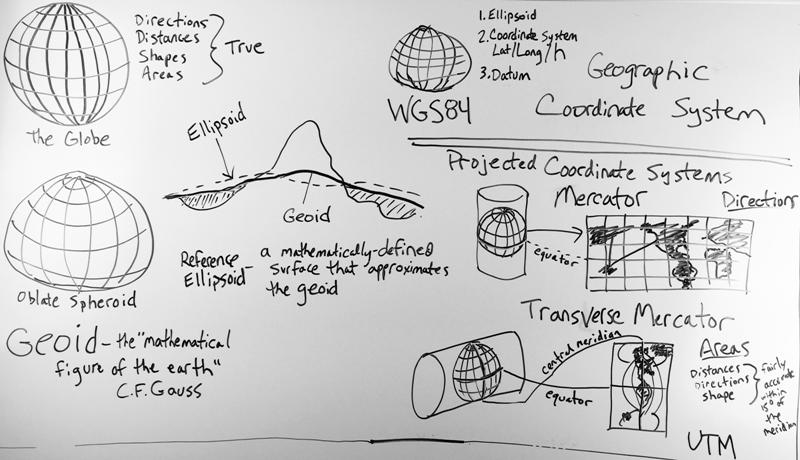 Directions
Distances
Shapes
Areas
True
The Globe
Ellipsoid
Geoid
Oblate Spheroid
Reference Ellipsoid - a mathematically-defined
surface that approximates
the geoid
Geoid - the "mathematical
figure of the earth"
C.F. Gauss
1. Ellipsoid
2. Coordinate System
Lat/Long/h
3. Datum
WGS84
Geographic
Coordinate System
Projected Coordinate Systems
Mercator
Directions
equator
Transverse Mercator
central meridian
equator
Areas
Distances
Directions
shape
fairly
accurate
within
15° of
the
meridian
UTM